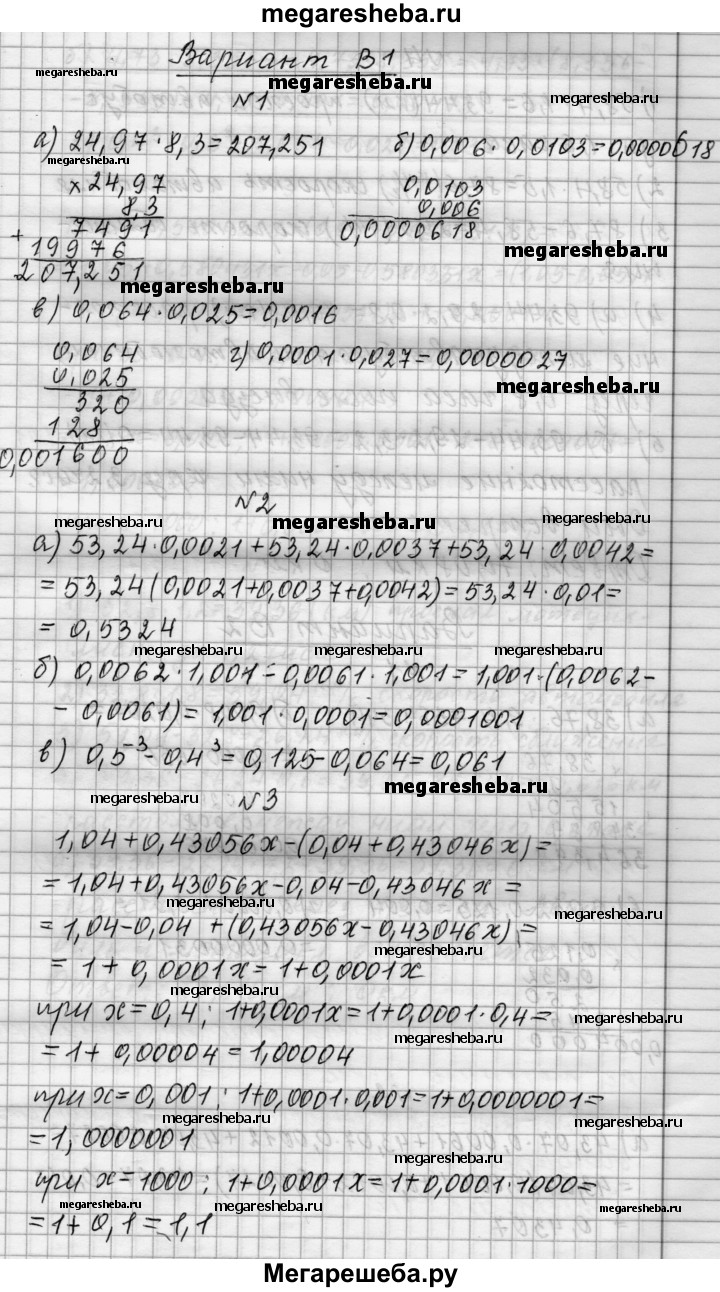 megaresheba.ru
Вариант В1
megaresheba.ru megaresheba.ru megaresheba.ru
№1
а) 24,97·8,3=207,251 б) 0,006·0,0103=0,0000618
megaresheba.ru
× 24,97 0,0103
8,3 0,006
7491 0,0000618
+ 19976 megaresheba.ru
207,251 megaresheba.ru
в) 0,064·0,025=0,0016
0,064 г) 0,0001·0,027=0,0000027
0,025 megaresheba.ru
320
128
0,001600
№2
megaresheba.ru megaresheba.ru megaresheba.ru
а) 53,24·0,0021+53,24·0,0037+53,24·0,0042=
=53,24(0,0021+0,0037+0,0042)=53,24·0,01=
=0,5324
megaresheba.ru megaresheba.ru megaresheba.ru
б) 0,0062·1,001-0,0061·1,001=1,001·(0,0062-
-0,0061)=1,001·0,0001=0,0001001
в) 0,5⁻³-0,4³=0,125-0,064=0,061
megaresheba.ru
megaresheba.ru №3
1,04+0,43056x-(0,04+0,43046x)=
=1,04+0,43056x-0,04-0,43046x=
megaresheba.ru megaresheba.ru
=1,04-0,04+(0,43056x-0,43046x)=
megaresheba.ru
=1+0,0001x=1+0,0001x
megaresheba.ru
при x=0,4; 1+0,0001x=1+0,0001·0,4=
megaresheba.ru
megaresheba.ru
=1+0,00004=1,00004
при x=0,001; 1+0,0001·0,001=1+0,0000001=
megaresheba.ru megaresheba.ru
=1,0000001
megaresheba.ru
при x=1000; 1+0,0001x=1+0,0001·1000=
megaresheba.ru megaresheba.ru megaresheba.ru
=1+0,1=1,1
Мегарешеба.ру